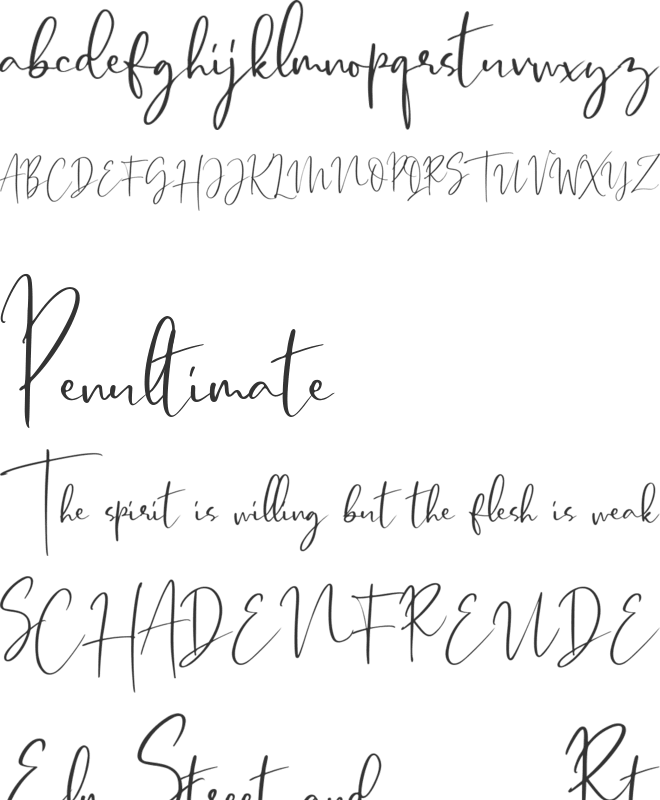 abcdefghijklmnopqrstuvwxyz
ABCDEFGHIJKLMNOPQRSTUVWXYZ
Penultimate
The spirit is willing but the flesh is weak
SCHADENFREUDE
Street and